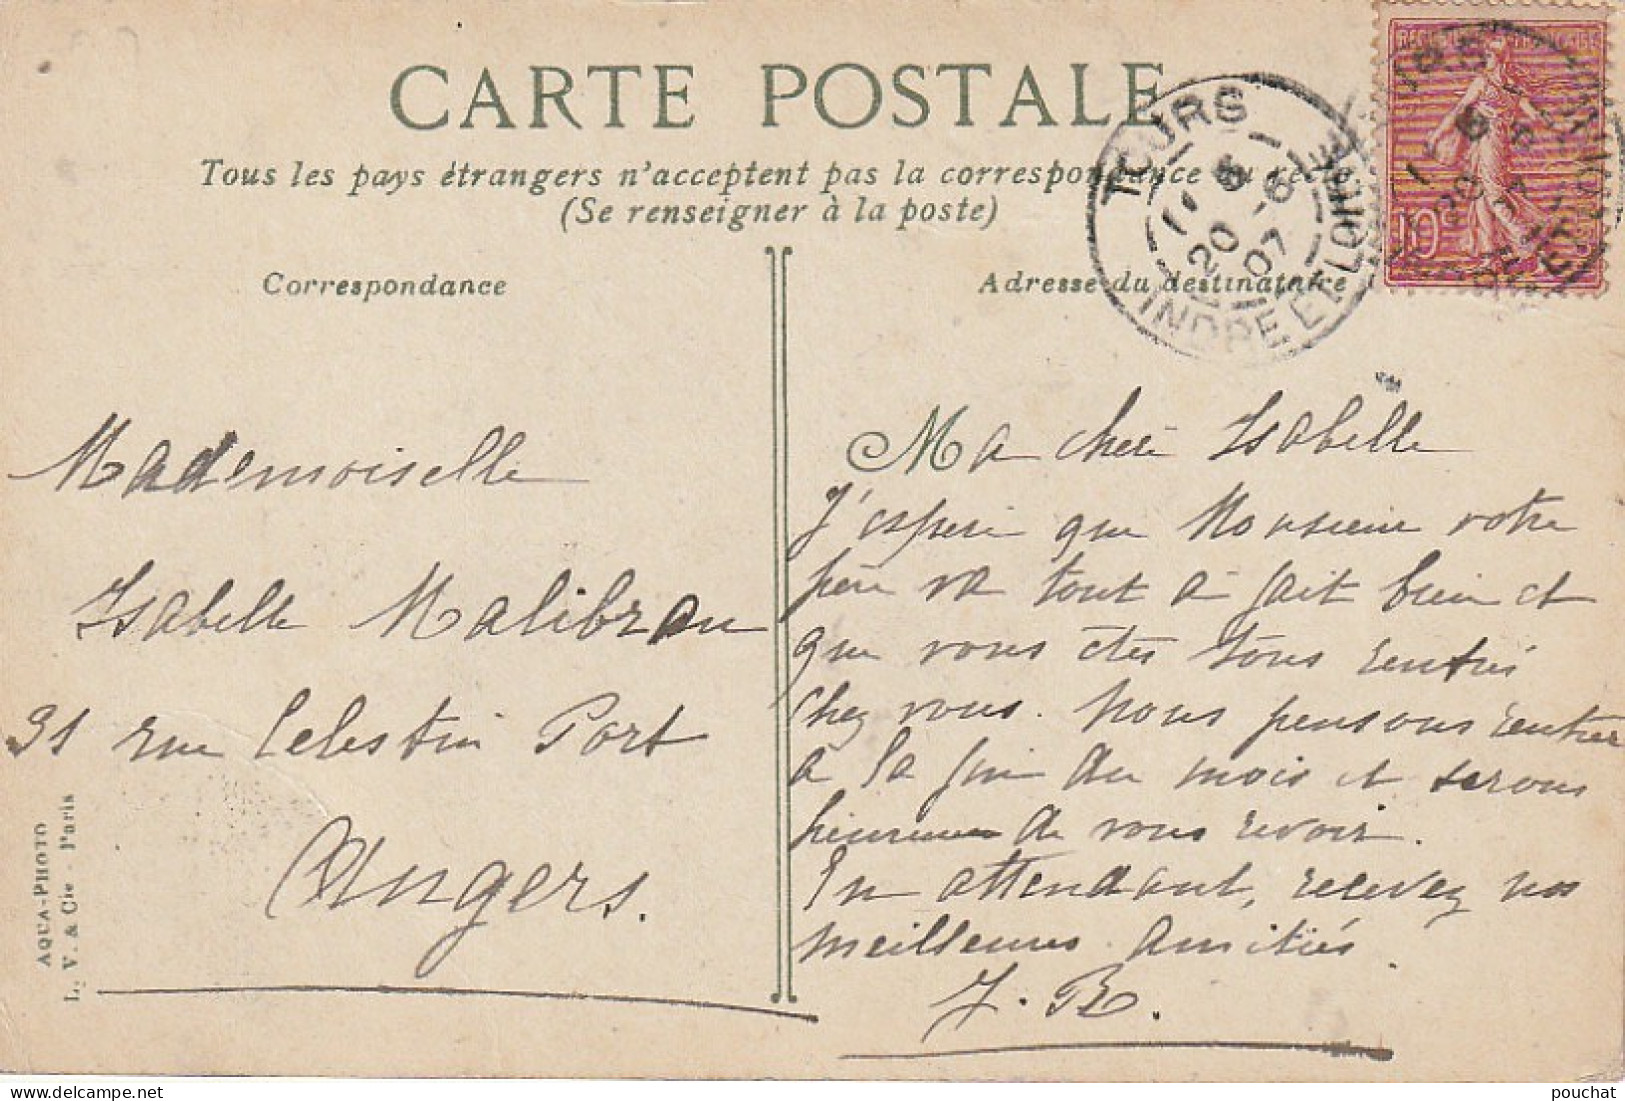 CARTE POSTALE
Tous les pays étrangers n'acceptent pas la correspondance au recto
(Se renseigner à la poste)
Correspondance
Adresse du destinataire
TOURS
INDRE ET LOIRE
20 6
07
10
Mademoiselle
Isabelle Malibran
31 rue Célestin Port
Angers.
AQUA-PHOTO
L. V. & Cie - Paris
Ma chère Isabelle
J'espère que Monsieur votre
père va tout à fait bien et
que vous êtes tous rentrés
chez vous. Nous pensons rentrer
à la fin du mois et serons
heureuses de vous revoir.
En attendant, recevez nos
meilleures amitiés.
J. B.
delcampe.net
pouchat